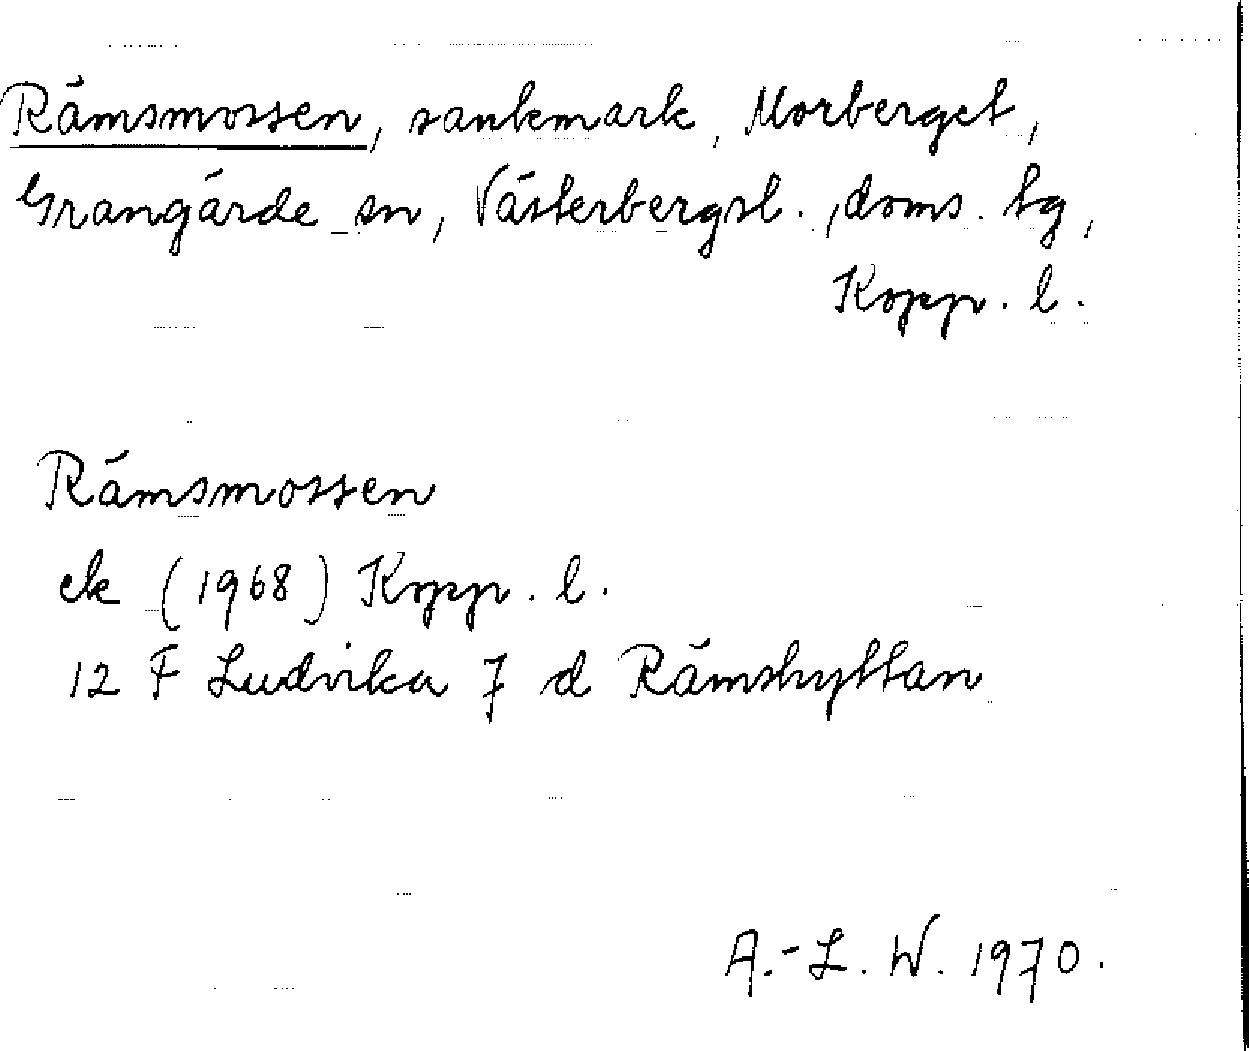 Rämsmossen, sankmark, Morberget,
Grangärde sn, Västerbergsl., doms. tg,
Kopp. l.
Rämsmossen
ek (1968) Kopp. l.
12 F Ludvika 7 d Rämshyttan
A.-L. W. 1970.